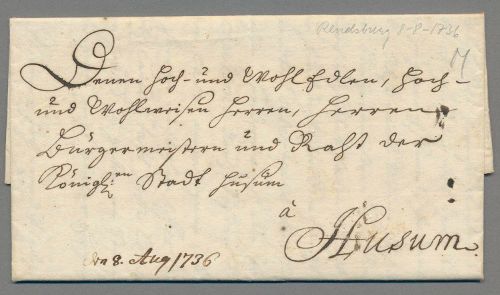 Rendsburg 8-8-1736
Denen Hoch- und WohlEdlen, Hoch-
und Wohlweisen Herren, Herren
Bürgermeistern und Raht der
Königl:en Stadt Husum
à
Husum.
den 8. Aug 1736